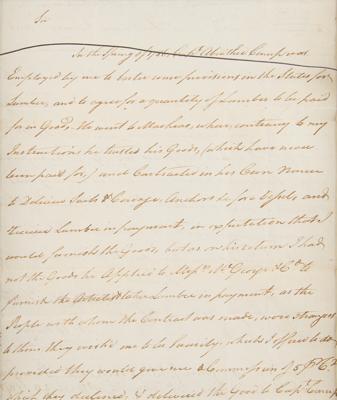 Sir
In the Spring of 1786, Capt. Camp was
Employed by me to barter some provisions in the States for
Lumber, and to agree for a quantity of Lumber to be paid
for in Goods. He went to Machias, where, contrary to my
Instructions he trusted his Goods, (which have never
been paid for,) and Contracted in his Own Name
to Deliver Sails & Cordage, Anchors &c for Vessels, and
Receive Lumber in payment, in expectation that I
would furnish the Goods, but as on his return I had
not the Goods he Applied to Messrs. & Co. to
furnish the Articles & take Lumber in payment, as the
People with whom the Contract was made, were strangers
to them, they wished me to be Security, which I offered to do
provided they would give me a Commission of 5 p Ct.
which they declined, & delivered the Goods to Capt. Camp